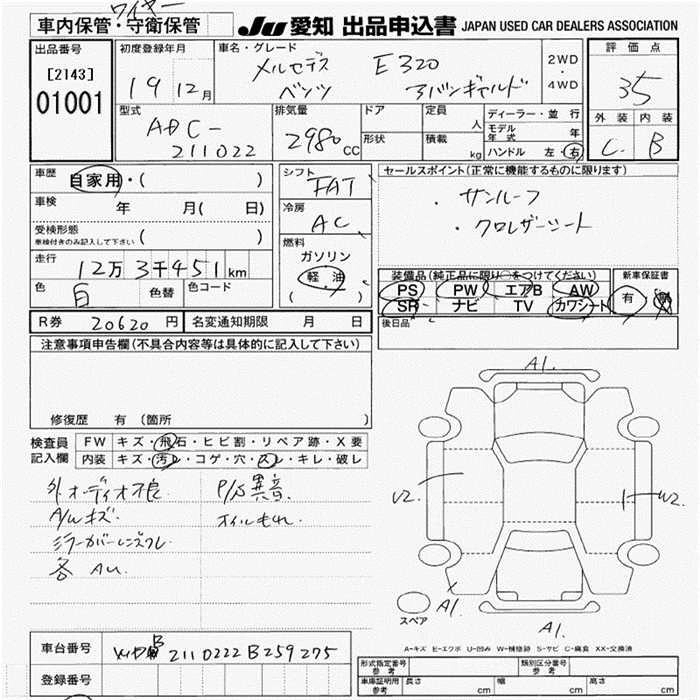 ワイヤー
車内保管・守衛保管
JU 愛知 出品申込書 JAPAN USED CAR DEALERS ASSOCIATION
出品番号
[2143]
01001
初度登録年月
19年12月
車名・グレード
メルセデス E320
ベンツ アバンギャルド
2WD・4WD
評価点
35
外装 内装
C B
型式
ADC-
211022
排気量
2980cc
ドア
形状
定員 人
積載 kg
ディーラー・並行
モデル年式 年
ハンドル 左・右
車歴
自家用・( )
車検 年 月( 日)
受検形態
車検付きのみ記入して下さい ( )
走行
12万3千451km
色 白 色替 色コード
シフト
FAT
冷房
AC
燃料
ガソリン
軽油
( )
セールスポイント(正常に機能するものに限ります)
・サンルーフ
・クロレザーシート
装備品(純正品に限り○をつけてください) 新車保証書
PS PW エアB AW 有 無
SR ナビ TV カワシート
後日品
R券 20620円 名変通知期限 月 日
注意事項申告欄(不具合内容等は具体的に記入して下さい)
修復歴 有 (箇所
検査員記入欄
FW キズ・飛石・ヒビ割・リペア跡・X要
内装 キズ・汚レ・コゲ・穴・スレ・キレ・破レ
外オーディオ不良 P/S異音
A/Wキズ オイルもれ
ミラーカバーレンズスレ
各AU
A1.
U2. W2.
A1.
スペア
A1.
A-キズ E-エクボ U-凹み W-補修跡 S-サビ C-腐食 XX-交換済
車台番号 B 2110222B259275
登録番号
形式指定番号 参考 類別区分番号 参考
車庫証明用 参考 長さ cm 幅 cm 高さ cm